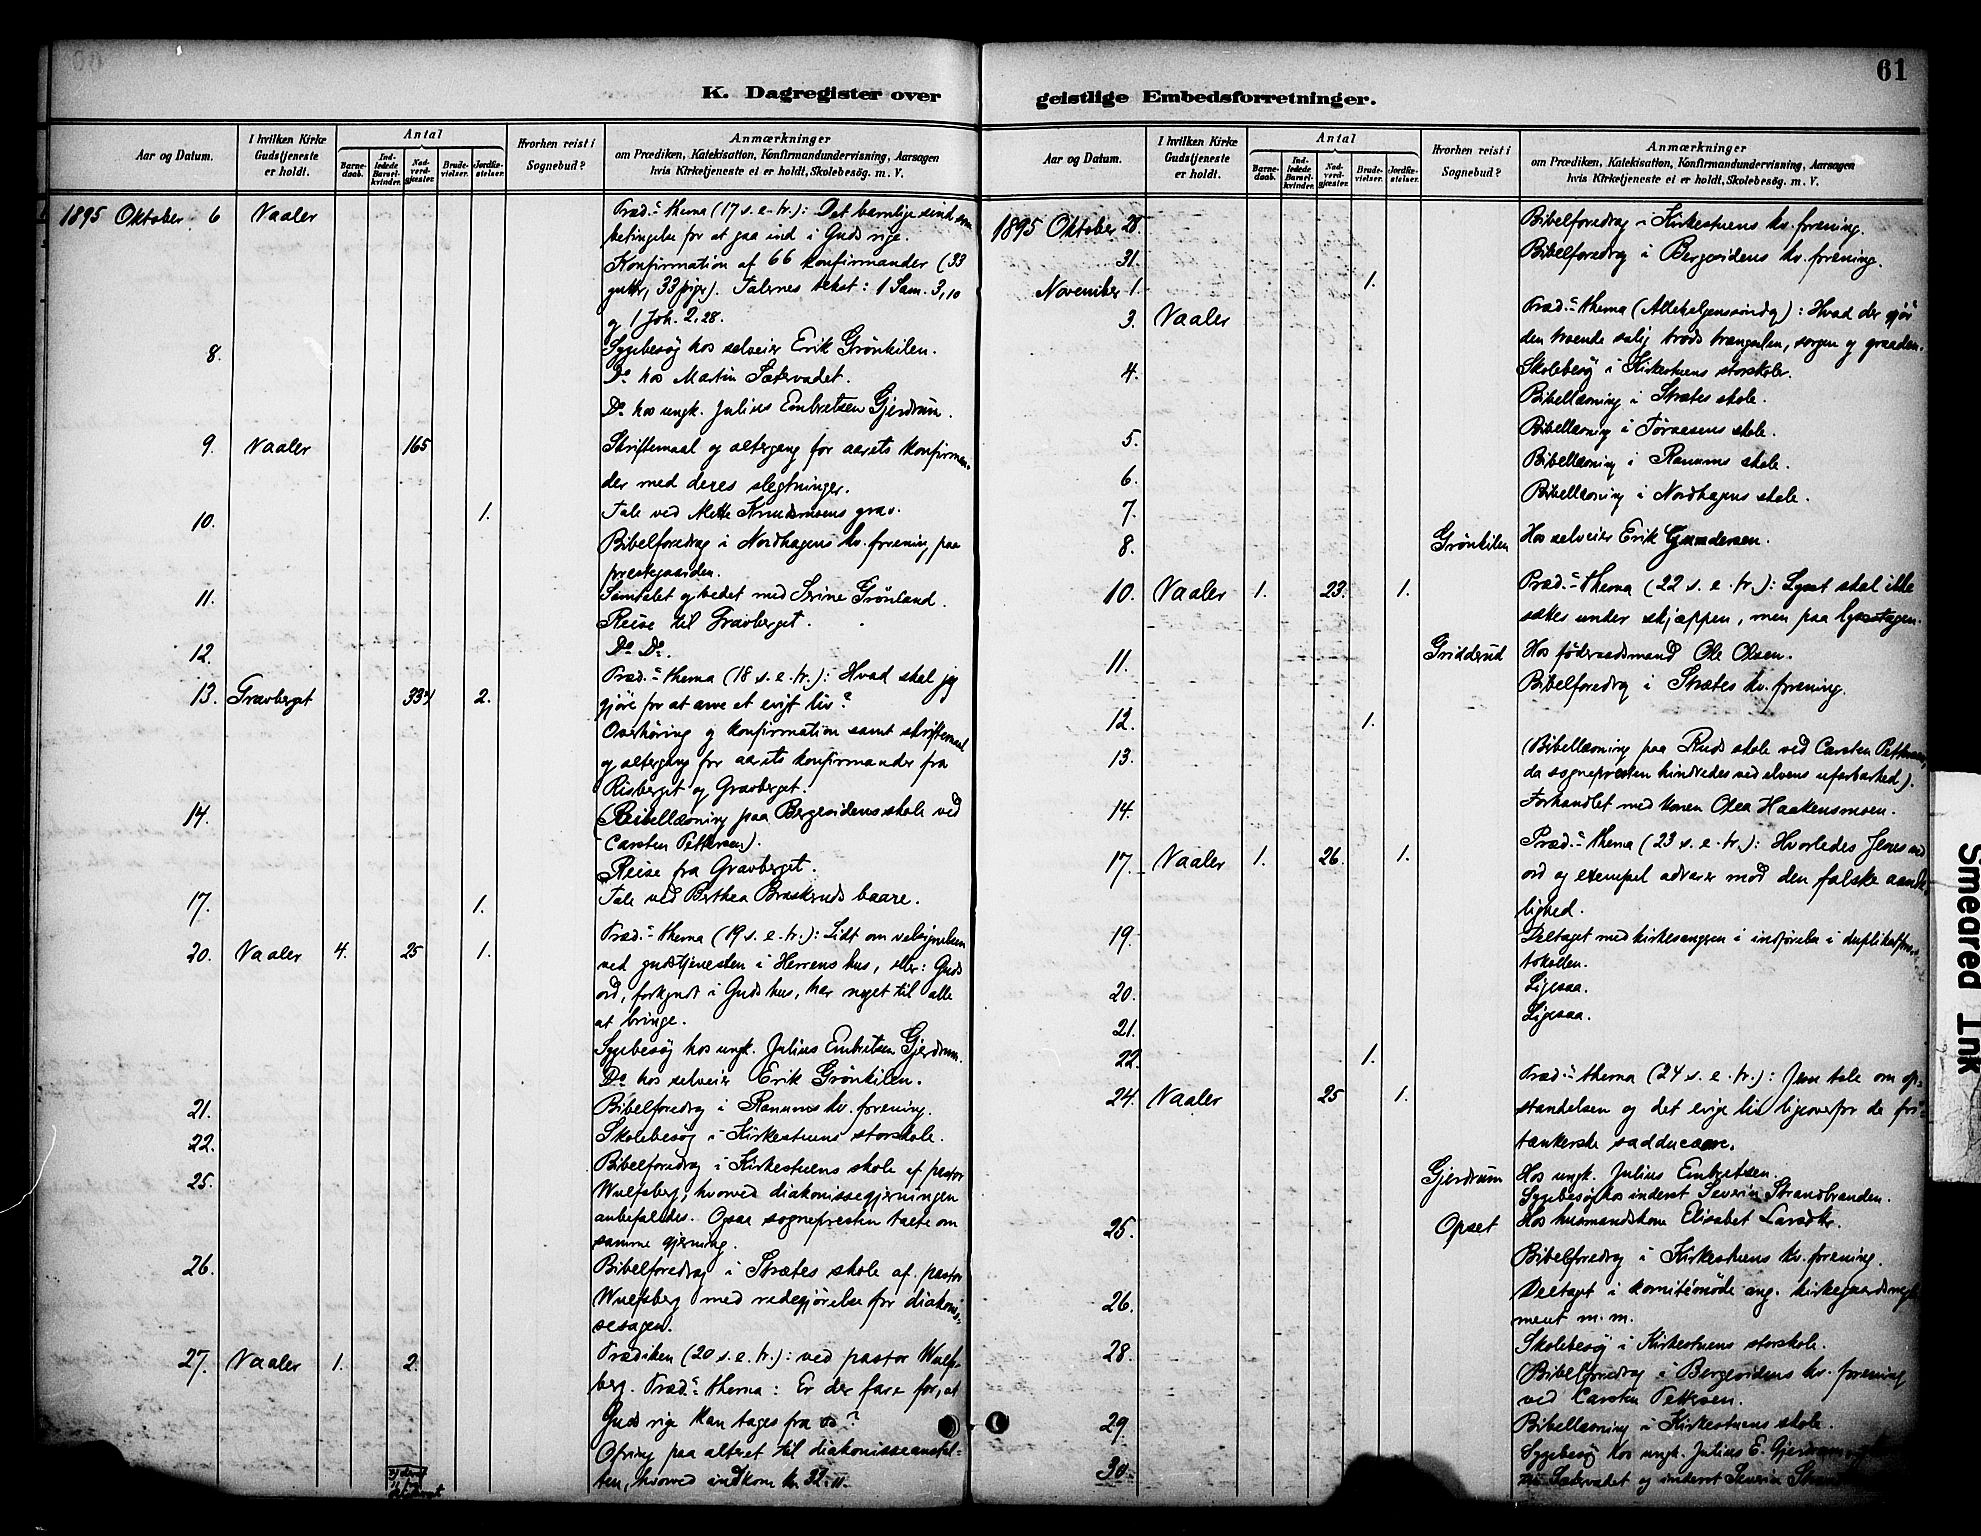 61
K. Dagregister over
Aar og Datum.
I hvilken Kirke Gudstjeneste er holdt.
Antal
Barnedaab.
Indledede Barselkvinder.
Nadverdgjæster.
Brudevielser.
Jordfæstelser.
Hvorhen reist i Sognebud?
Anmærkninger
om Prædiken, Katekisation, Konfirmandundervisning, Aarsagen
hvis Kirketjeneste ei er holdt, Skolebesøg. m. V.
1895 Oktober 6 Vaaler Præd.- thema (17 s. e. tr.): Det barnlige sind som
betingelse for at gaa ind i Guds rige.
Konfirmation af 66 konfirmander (33
gutter, 33 piger). Talernes tekst: 1 Sam. 3,10
og 1 Joh. 2,28.
8. Sygebesøg hos selveier Erik Grønkilen.
Do hos Martin Sætervadet.
Do hos ungk. Julius Embretsen Gjerdrum.
9. Vaaler 165 Skriftemaal og altergang for aarets konfirman-
der med deres slegtninger.
10. 1. Tale ved Mette Knudsmoens grav.
Bibelforedrag i Nordhagens kv. forening paa
prestegaarden.
11. Samtalet og bedet med Serine Grønland.
Reise til Gravberget.
12. Do Do
13. Gravberget 2. Præd.- thema (18 s. e. tr.): Hvad skal jeg
gjøre for at arve et evigt liv?
Overhøring og konfirmation samt skriftemaal
og altergang for aarets konfirmander fra
Risberget og Gravberget.
14. (Bibellæsning paa Bergesidens skole ved
Carsten Pettersen).
Reise fra Gravberget.
17. 1. Tale ved Berthea Braskeruds baare.
20. Vaaler 4. 25 1. Præd.- thema (19 s. e. tr.): Lidt om velsignelsen
ved gudstjenesten i Herrens hus, eller: Guds
ord, forkyndt i Guds hus, har noget til alle
at bringe.
Sygebesøg hos ungk. Julius Embretsen Gjerdrum.
Do hos selveier Erik Grønkilen.
21. Bibelforedrag i Ranums kv. forening.
22. Skolebesøg i Kirkestuens storskole.
25. Bibelforedrag i Kirkestuens skole af pastor
Wulfsberg, hvorved diakonissegjerningen
anbefaledes. Ogsaa sognepresten talte om
samme gjerning.
26. Bibelforedrag i Strætes skole af pastor
Wulfsberg med redegjørelse for diakonis-
sesagen.
27. Vaaler 1. 2. Prædiken (20 s. e. tr.): ved pastor Wulfs-
berg. Præd.- thema: Er der fare for, at
Guds rige kan tages fra os?
Ofring paa alteret til diakonisseanstal-
ten, hvorved indkom kr. 32.11.
geistlige Embedsforretninger.
Aar og Datum.
I hvilken Kirke Gudstjeneste er holdt.
Antal
Barnedaab.
Indledede Barselkvinder.
Nadverdgjæster.
Brudevielser.
Jordfæstelser.
Hvorhen reist i Sognebud?
Anmærkninger
om Prædiken, Katekisation, Konfirmandundervisning, Aarsagen
hvis Kirketjeneste ei er holdt, Skolebesøg. m. V.
1895 Oktober 28. Bibelforedrag i Kirkestuens kv. forening.
31. Bibelforedrag i Bergesidens kv. forening.
November 1. 1.
3. Vaaler Præd.- thema (Allehelgenssøndg): Hvad der gjør
den troende salig trods trængselen, sorgen og graaden.
4. Skolebesøg i Kirkestuens storskole.
Bibellæsning i Strætes skole.
5. Bibellæsning i Toraasens skole.
6. Bibellæsning i Ranums skole.
7. Bibellæsning i Nordhagens skole.
8. Grønkilen Hos selveier Erik Gundersen.
10. Vaaler 1. 23. 1. Præd.- thema (22 s. e. tr.): Lyset skal ikke
sættes under skjæppen, men paa lysestagen.
11. Gridderud Hos føderaadsmand Ole Olsen.
Bibelforedrag i Strætes kv. forening.
12. 1.
13. (Bibellæsning paa Ruds skole ved Carsten Pettersen,
da sognepresten hindredes ved elvens ufarbarhed).
14. Forhandlet med konen Olea Haakensmoen.
17. Vaaler 1. 26. 1. Præd.- thema (23 s. e. tr.): Hvorledes Jesus ved
ord og exempel advarer mod den falske aande-
lighed.
19. Deltaget med kirkesangeren i indførelse i duplikatpro-
tokollen.
20. Ligesaa.
21. Ligesaa.
22. 1.
24. Vaaler 25 1. Præd.- thema (24 s. e. tr.): Jesu tale om op-
standelsen og det evige liv ligeoverfor de fri-
tænkerske sadducæere.
Gjerdrum Hos ungk. Julius Embretsen.
Sygebesøg hos inderst Severin Strandbranden.
25. Opset Hos husmandskone Elisabet Larsdtr.
Bibelforedrag i Kirkestuens kv. forening.
26. Deltaget i komitémøde ang. kirkegaardsregle-
ment m. m.
28. Skolebesøg i Kirkestuens storskole.
(Bibelforedrag i Bergesidens kv. forening
ved Carsten Pettersen.
29. Bibellæsning i Kirkestuens skole.
30. Sygebesøg hos ungk. Julius E. Gjerdrum,
Sætervadet og inderst Severin
Smeared Ink